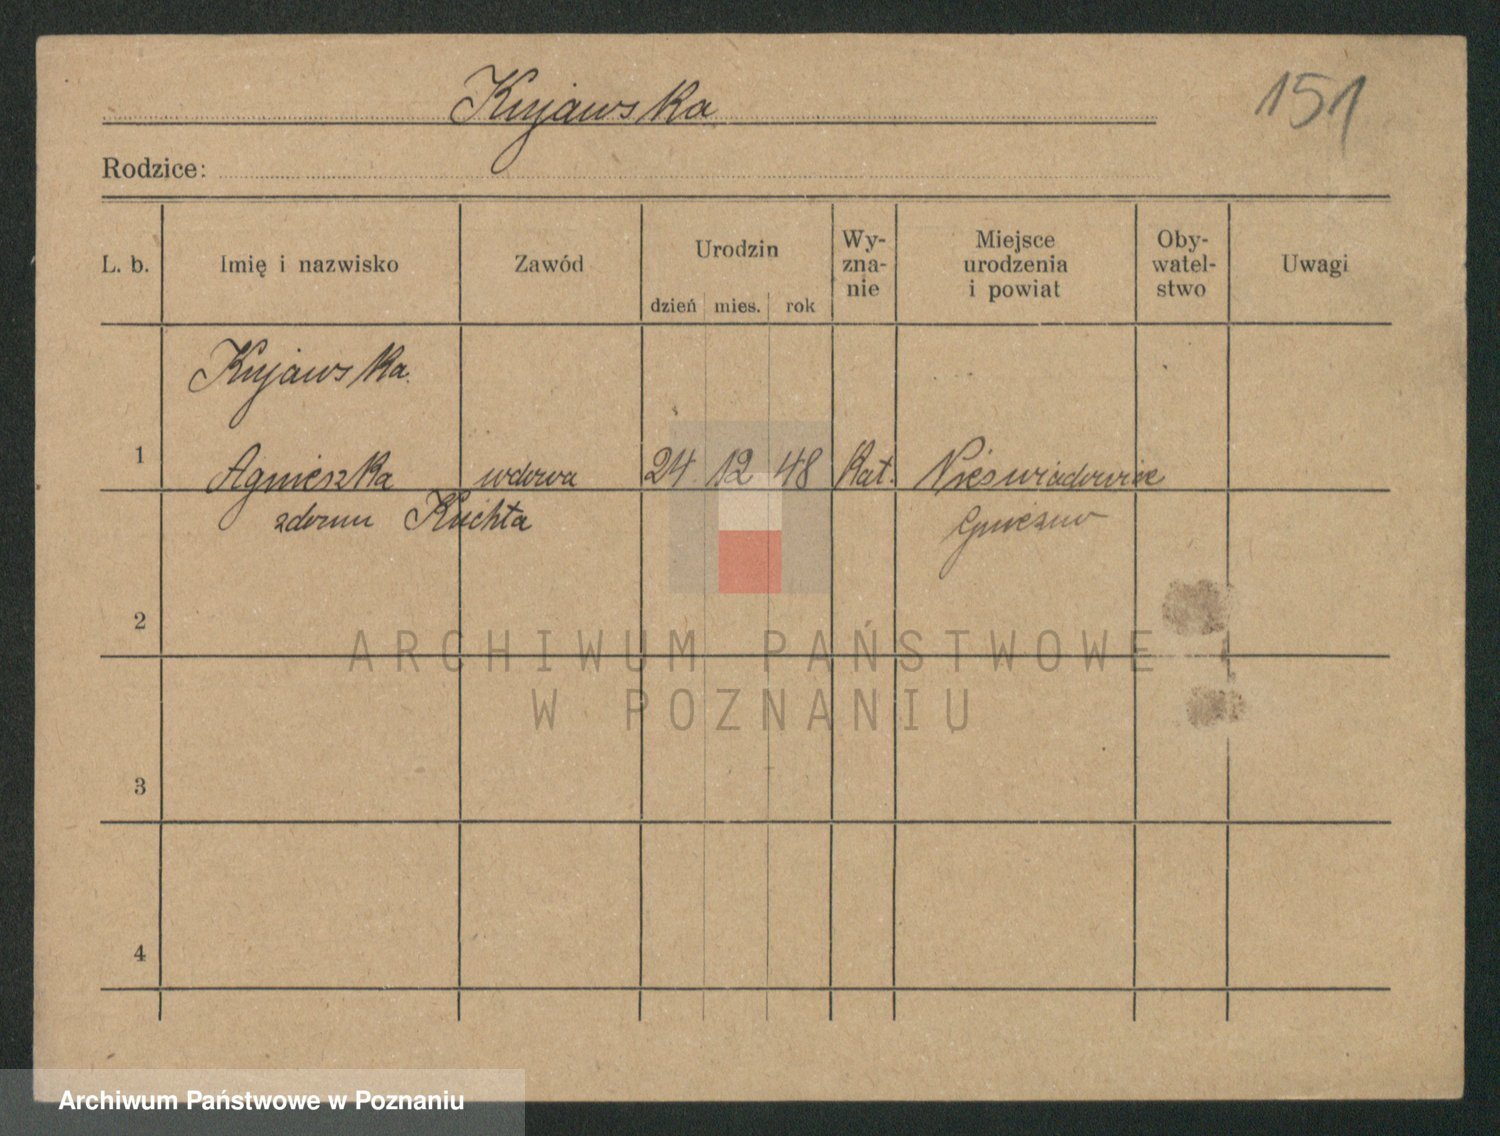 Kujawska
151
Rodzice:
L. b.
Imię i nazwisko
Zawód
Urodzin
dzień mies. rok
Wy-
zna-
nie
Miejsce
urodzenia
i powiat
Oby-
watel-
stwo
Uwagi
Kujawska
1 Agnieszka wdowa 24 12 48 Kat. Nieświadowice
zdomu Kuchta Gniezno
2
3
4
ARCHIWUM PAŃSTWOWE
W POZNANIU
Archiwum Państwowe w Poznaniu